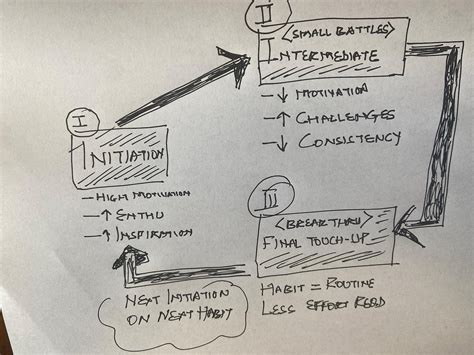 I
INITIATION
— HIGH MOTIVATION
— ↑ ENTHU
— ↑ INSPIRATION
II
<SMALL BATTLES>
INTERMEDIATE
— ↓ MOTIVATION
— ↑ CHALLENGES
— ↓ CONSISTENCY
III
<BREAK THRU>
FINAL TOUCH-UP
HABIT = ROUTINE
LESS EFFORT REQD
NEXT INITIATION
ON NEXT HABIT